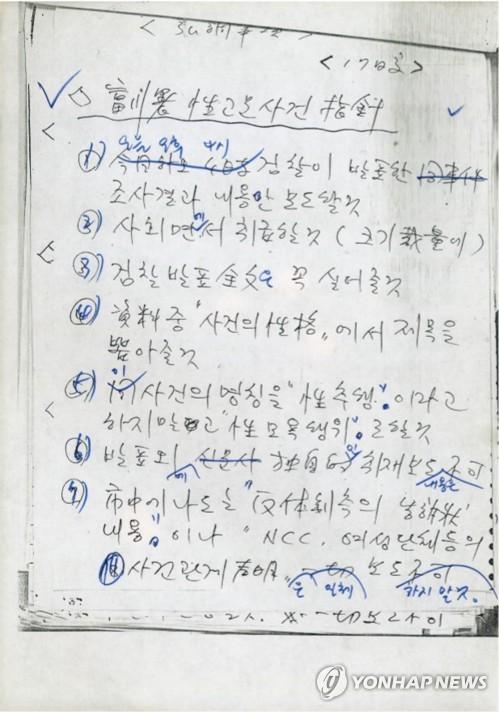 <17日字>
富川署 性고문사건 指針
오늘 오후 시
① 今日 검찰이 발표한
조사결과 내용만 보도할것
② 사회면에서 취급할것 (크기 裁量에)
③ 검찰 발표 全文은 꼭 실어줄것
④ 資料중 "사건의 性格"에서 제목을
뽑아줄것
⑤ 이 사건의 명칭을 "性추행"이라고
하지말고 "性모욕행위"로 할것
⑥ 발표외 独自的인 취재보도 不可
에 내용은
⑦ 市中에 나도는 "反体制측의 告訴状
내용"이나 "NCC, 여성단체등의
사건관계 声明" 一切 보도不可
은 일체 하지 말것.
YONHAP NEWS